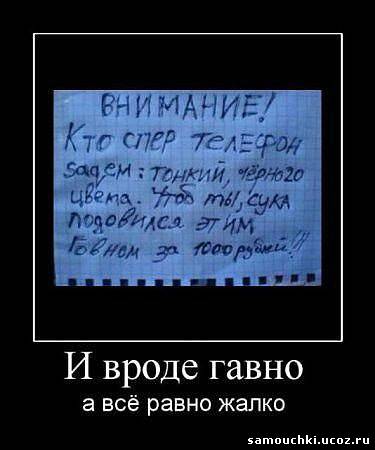 ВНИМАНИЕ!
Кто спер телефон
sagem: тонкий, чёрного
цвета. Чтоб ты, сука
подовился этим
Говном за 1000 рублей!!!
И вроде гавно
а всё равно жалко
samouchki.ucoz.ru